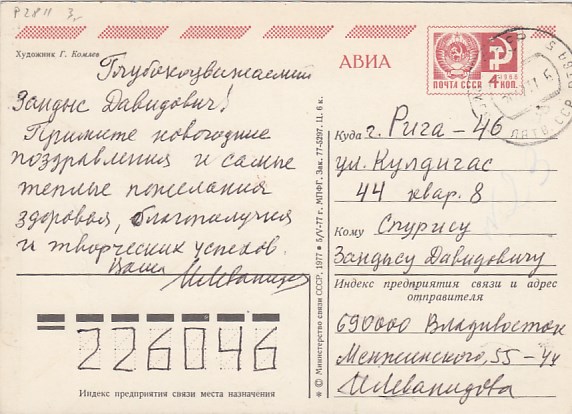 Р2811 3г
Художник Г. Комлев
АВИА
ПОЧТА СССР 4 КОП.
Глубокоуважаемый
Зандыс Давидович!
Примите новогодние
поздравления и самые
теплые пожелания
здоровья, благополучия
и творческих успехов.
Ваша
Куда г. Рига - 46
ул. Кулдигас
44 квар. 8
Кому Спурису
Зандысу Давидовичу
Индекс предприятия связи и адрес
отправителя
690000 Владивосток
Менжинского, 55-44
226046
Индекс предприятия связи места назначения
* © Министерство связи СССР, 1977 * 5/V-77 г. МПФГ. Зак. 77-5297. Ц. 6 к.